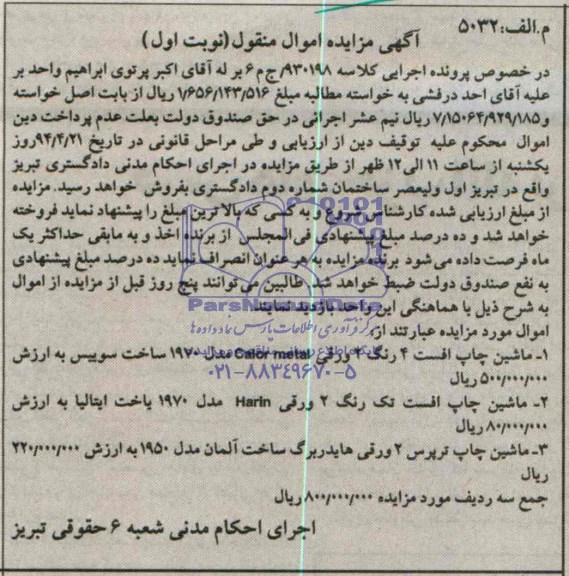 م.الف: ۵۰۳۲
آگهی مزایده اموال منقول(نوبت اول)
در خصوص پرونده اجرایی کلاسه ۹۳۰۱۹۸/ج م ۶ بر له آقای اکبر پرتوی ابراهیم واحد بر
علیه آقای احد درفشی به خواسته مطالبه مبلغ ۱/۶۵۶/۱۴۳/۵۱۶ ریال از بابت اصل خواسته
و ۷/۱۵۰۶۴/۹۲۹/۱۸۵ ریال نیم عشر اجرائی در حق صندوق دولت بعلت عدم پرداخت دین
اموال محکوم علیه توقیف دین از ارزیابی و طی مراحل قانونی در تاریخ ۹۴/۴/۲۱ روز
یکشنبه از ساعت ۱۱ الی ۱۲ ظهر از طریق مزایده در اجرای احکام مدنی دادگستری تبریز
واقع در تبریز اول ولیعصر ساختمان شماره دوم دادگستری بفروش خواهد رسید. مزایده
از مبلغ ارزیابی شده کارشناس شروع و به کسی که بالا ترین مبلغ را پیشنهاد نماید فروخته
خواهد شد و ده درصد مبلغ پیشنهادی فی المجلس از برنده اخذ و به مابقی حداکثر یک
ماه فرصت داده می شود برنده مزایده به هر عنوان انصراف نماید ده درصد مبلغ پیشنهادی
به نفع صندوق دولت ضبط خواهد شد. طالبین می توانند پنج روز قبل از مزایده از اموال
به شرح ذیل با هماهنگی این واحد بازدید نمایند
ParsNamadData
اموال مورد مزایده عبارتند از:
مرکز فرآوری اطلاعات پارس نماد داده ها
۱- ماشین چاپ افست ۴ رنگ ۲ ورقی Calor metal مدل ۱۹۷۰ ساخت سوییس به ارزش
۵۰۰/۰۰۰/۰۰۰ ریال
۰۲۱-۸۸۳۴۹۶۷۰-۵
۲- ماشین چاپ افست تک رنگ ۲ ورقی Harin مدل ۱۹۷۰ یاخت ایتالیا به ارزش
۸۰/۰۰۰/۰۰۰ ریال
۳- ماشین چاپ ترپرس ۲ ورقی هایدربرگ ساخت آلمان مدل ۱۹۵۰ به ارزش ۲۲۰/۰۰۰/۰۰۰
ریال
جمع سه ردیف مورد مزایده ۸۰۰/۰۰۰/۰۰۰ ریال
اجرای احکام مدنی شعبه ۶ حقوقی تبریز